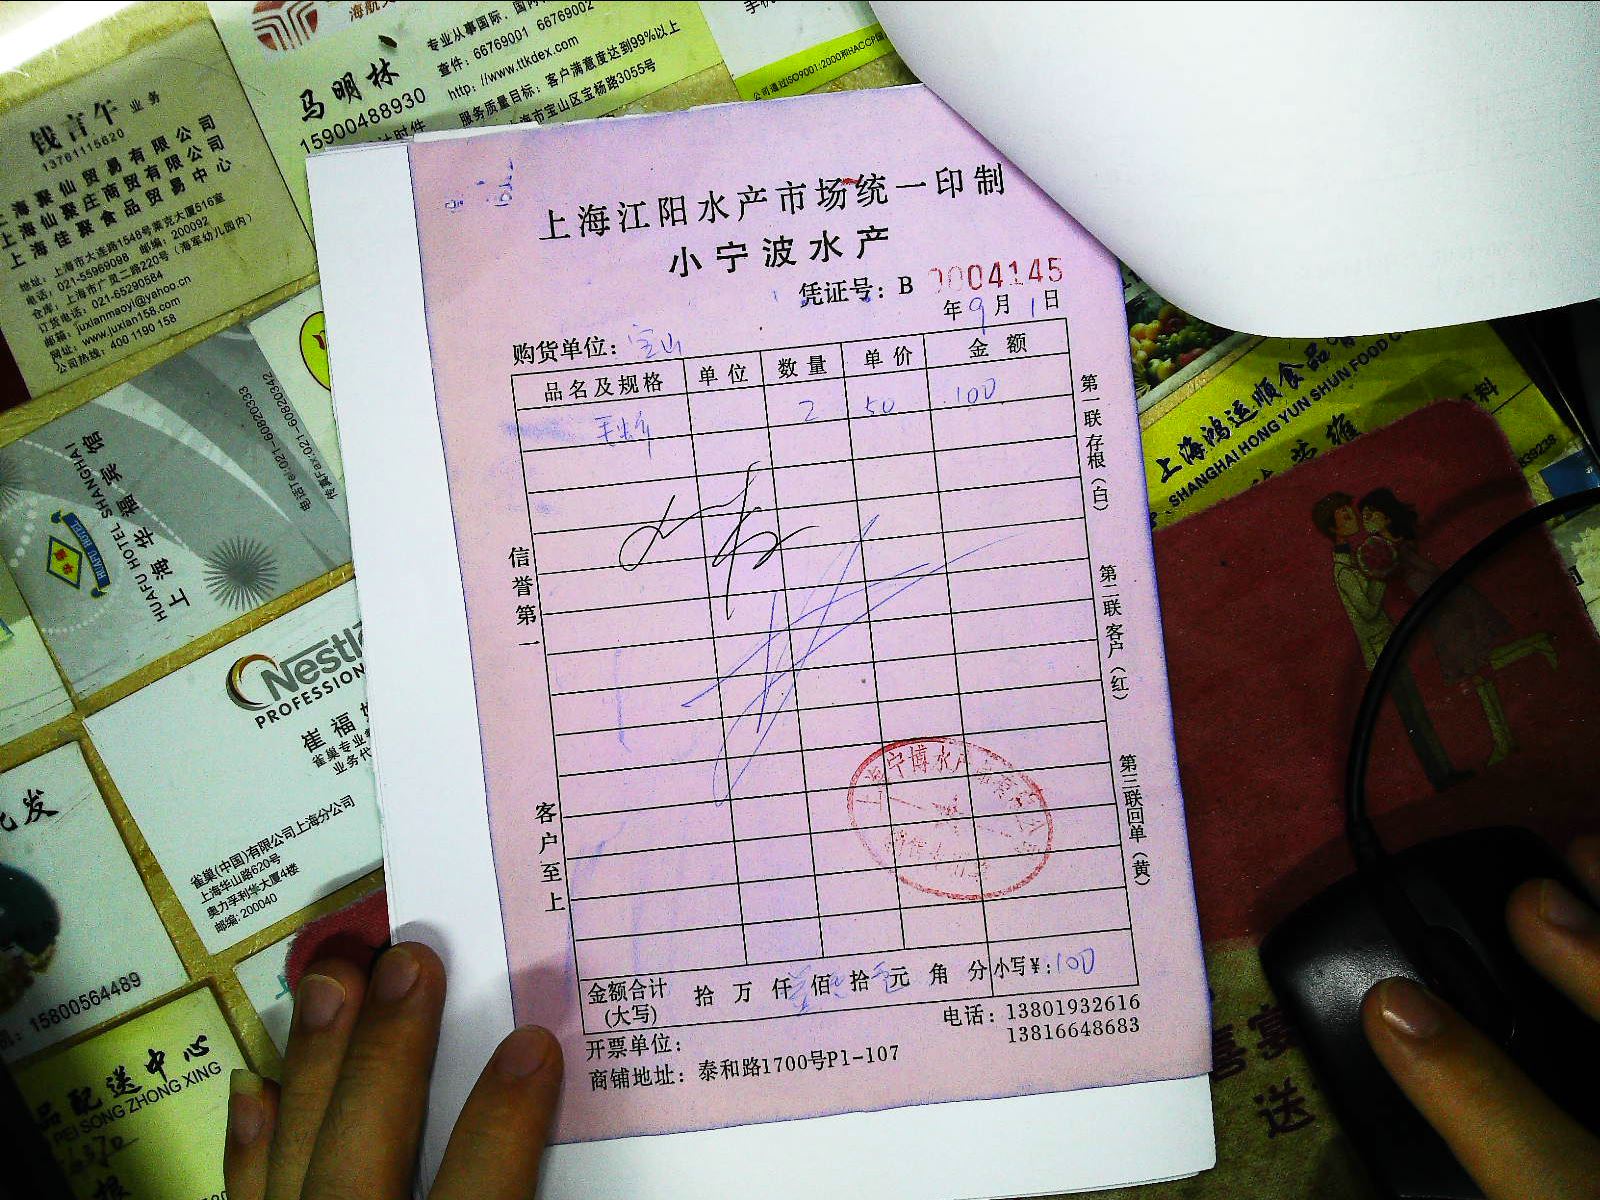 上海江阳水产市场统一印制
小宁波水产
凭证号：B 0004145
年 9 月 1 日
购货单位：宝山
品名及规格 单位 数量 单价 金额
2 50 100
信誉第一
客户至上
第一联存根（白）
第二联客户（红）
第三联回单（黄）
金额合计 拾 万 仟 佰 拾 元 角 分 小写¥：100
（大写）
开票单位：
电话：13801932616
13816648683
商铺地址：泰和路1700号P1-107
钱言午 业务
13761115620
上海聚仙贸易有限公司
上海仙聚庄商贸有限公司
上海佳聚食品贸易中心
地址：上海市大连路1548号莱克大厦516室
电话：021-55969098 邮编：200092
仓库：上海市广灵二路220号（海军幼儿园内）
订货电话：021-65290584
邮箱：juxianmaoyi@yehoo.cn
网址：www.juxian158.com
公司热线：400 1190 158
马明林
15900488930
专业从事国际、国内
查件：66769001 66769002
http：//www.ttkdex.com
服务质量目标：客户满意度达到99%以上
上海市宝山区宝杨路3055号
公司通过ISO9001:2000和HACCP
上海华福宾馆
HUAFU HOTEL SHANGHAI
HUAFU HOTEL
电话Tel:021-60820333
传真Fax:021-60820342
Nestlé
PROFESSIONAL
崔福
雀巢专业
业务代
雀巢(中国)有限公司上海分公司
上海华山路620号
奥力孚利华大厦4楼
邮编：200040
批发
15800564489
品配送中心
PEI SONG ZHONG XING
上海鸿运顺食品
SHANGHAI HONG YUN SHUN FOOD CO
喜宴
送